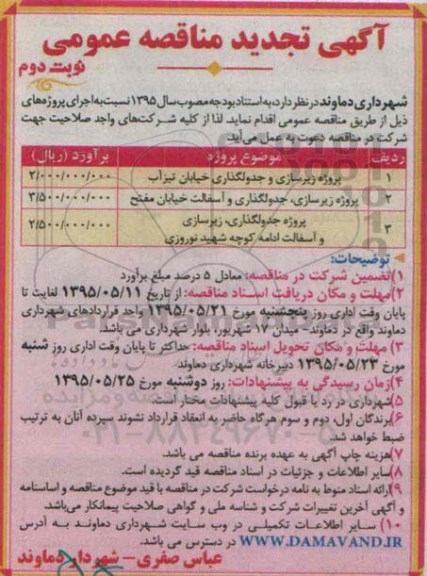 آگهی تجدید مناقصه عمومی
نوبت دوم
شهرداری دماوند در نظر دارد، به استناد بودجه مصوب سال ۱۳۹۵ نسبت به اجرای پروژه های
ذیل از طریق مناقصه عمومی اقدام نماید. لذا از کلیه شرکت‌های واجد صلاحیت جهت
شرکت در مناقصه دعوت به عمل می‌آید.
ردیف موضوع پروژه برآورد (ریال)
۱ پروژه زیرسازی و جدولگذاری خیابان تیزآب ۲/۰۰۰/۰۰۰/۰۰۰
۲ پروژه زیرسازی، جدولگذاری و آسفالت خیابان مفتح ۳/۵۰۰/۰۰۰/۰۰۰
۳ پروژه جدولگذاری، زیرسازی و آسفالت ادامه کوچه شهید نوروزی ۲/۵۰۰/۰۰۰/۰۰۰
توضیحات:
۱) تضمین شرکت در مناقصه: معادل ۵ درصد مبلغ برآورد
۲) مهلت و مکان دریافت اسناد مناقصه: از تاریخ ۱۳۹۵/۰۵/۱۱ لغایت تا
پایان وقت اداری روز پنجشنبه مورخ ۱۳۹۵/۰۵/۲۱ واحد قراردادهای شهرداری
دماوند واقع در دماوند- میدان ۱۷ شهریور، بلوار شهرداری می باشد.
۳) مهلت و مکان تحویل اسناد مناقصه: حداکثر تا پایان وقت اداری روز شنبه
مورخ ۱۳۹۵/۰۵/۲۳ دبیرخانه شهرداری دماوند
۴) زمان رسیدگی به پیشنهادات: روز دوشنبه مورخ ۱۳۹۵/۰۵/۲۵
۵) شهرداری در رد یا قبول کلیه پیشنهادات مختار است.
۶) برندگان اول، دوم و سوم هرگاه حاضر به انعقاد قرارداد نشوند سپرده آنان به ترتیب
ضبط خواهد شد.
۷) هزینه چاپ آگهی به عهده برنده مناقصه می باشد.
۸) سایر اطلاعات و جزئیات در اسناد مناقصه قید گردیده است.
۹) ارائه اسناد منوط به نامه درخواست شرکت در مناقصه با قید موضوع مناقصه و اساسنامه
و آگهی آخرین تغییرات شرکت و شناسه ملی و گواهی صلاحیت پیمانکار می‌باشد.
۱۰) سایر اطلاعات تکمیلی در وب سایت شهرداری دماوند به آدرس
WWW.DAMAVAND.IR در دسترس می باشد.
عباس صفری – شهردار دماوند